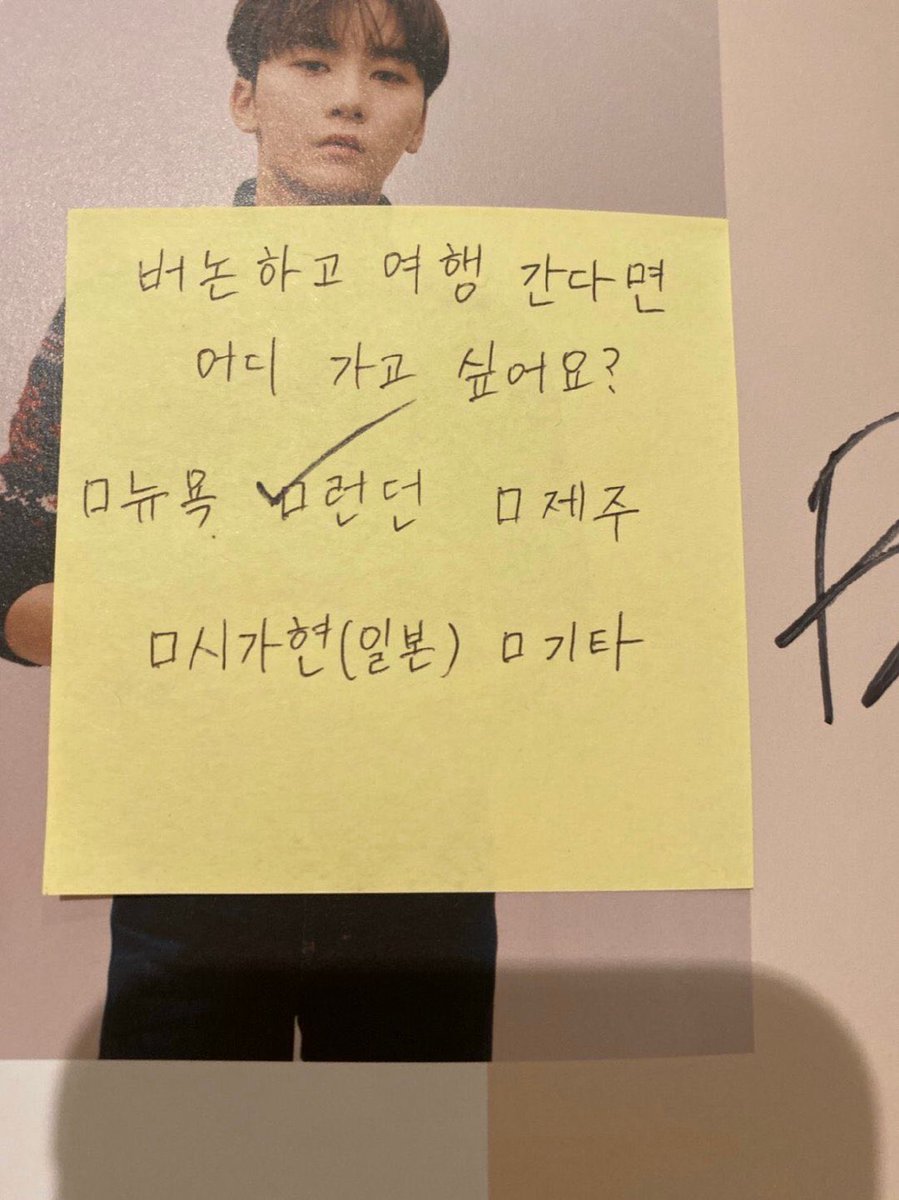 버논하고 여행 간다면
어디 가고 싶어요?
□뉴욕 ☑런던 □제주
□시가현(일본) □기타